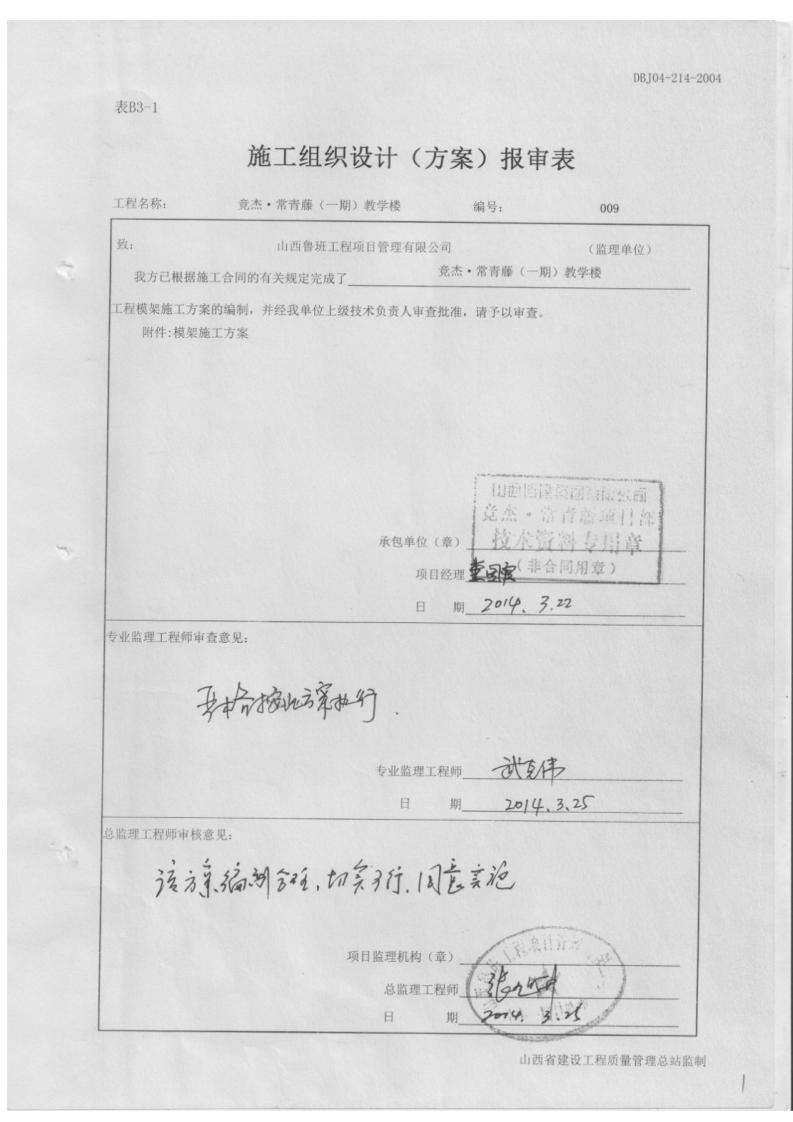 DBJ04-214-2004
表B3-1
施工组织设计（方案）报审表
工程名称： 竞杰·常青藤（一期）教学楼 编号： 009
致： 山西鲁班工程项目管理有限公司 （监理单位）
我方已根据施工合同的有关规定完成了 竞杰·常青藤（一期）教学楼
工程模架施工方案的编制，并经我单位上级技术负责人审查批准，请予以审查。
附件:模架施工方案
竞杰·常青藤项目部
承包单位（章） 技术资料专用章
项目经理 （非合同用章）
日 期 2014.3.22
专业监理工程师审查意见：
严格按此方案执行.
专业监理工程师 武克伟
日 期 2014.3.25
总监理工程师审核意见：
该方案编制合理,切实可行,同意实施
项目监理机构（章）
总监理工程师
日 期 2014.3.25
山西省建设工程质量管理总站监制
1